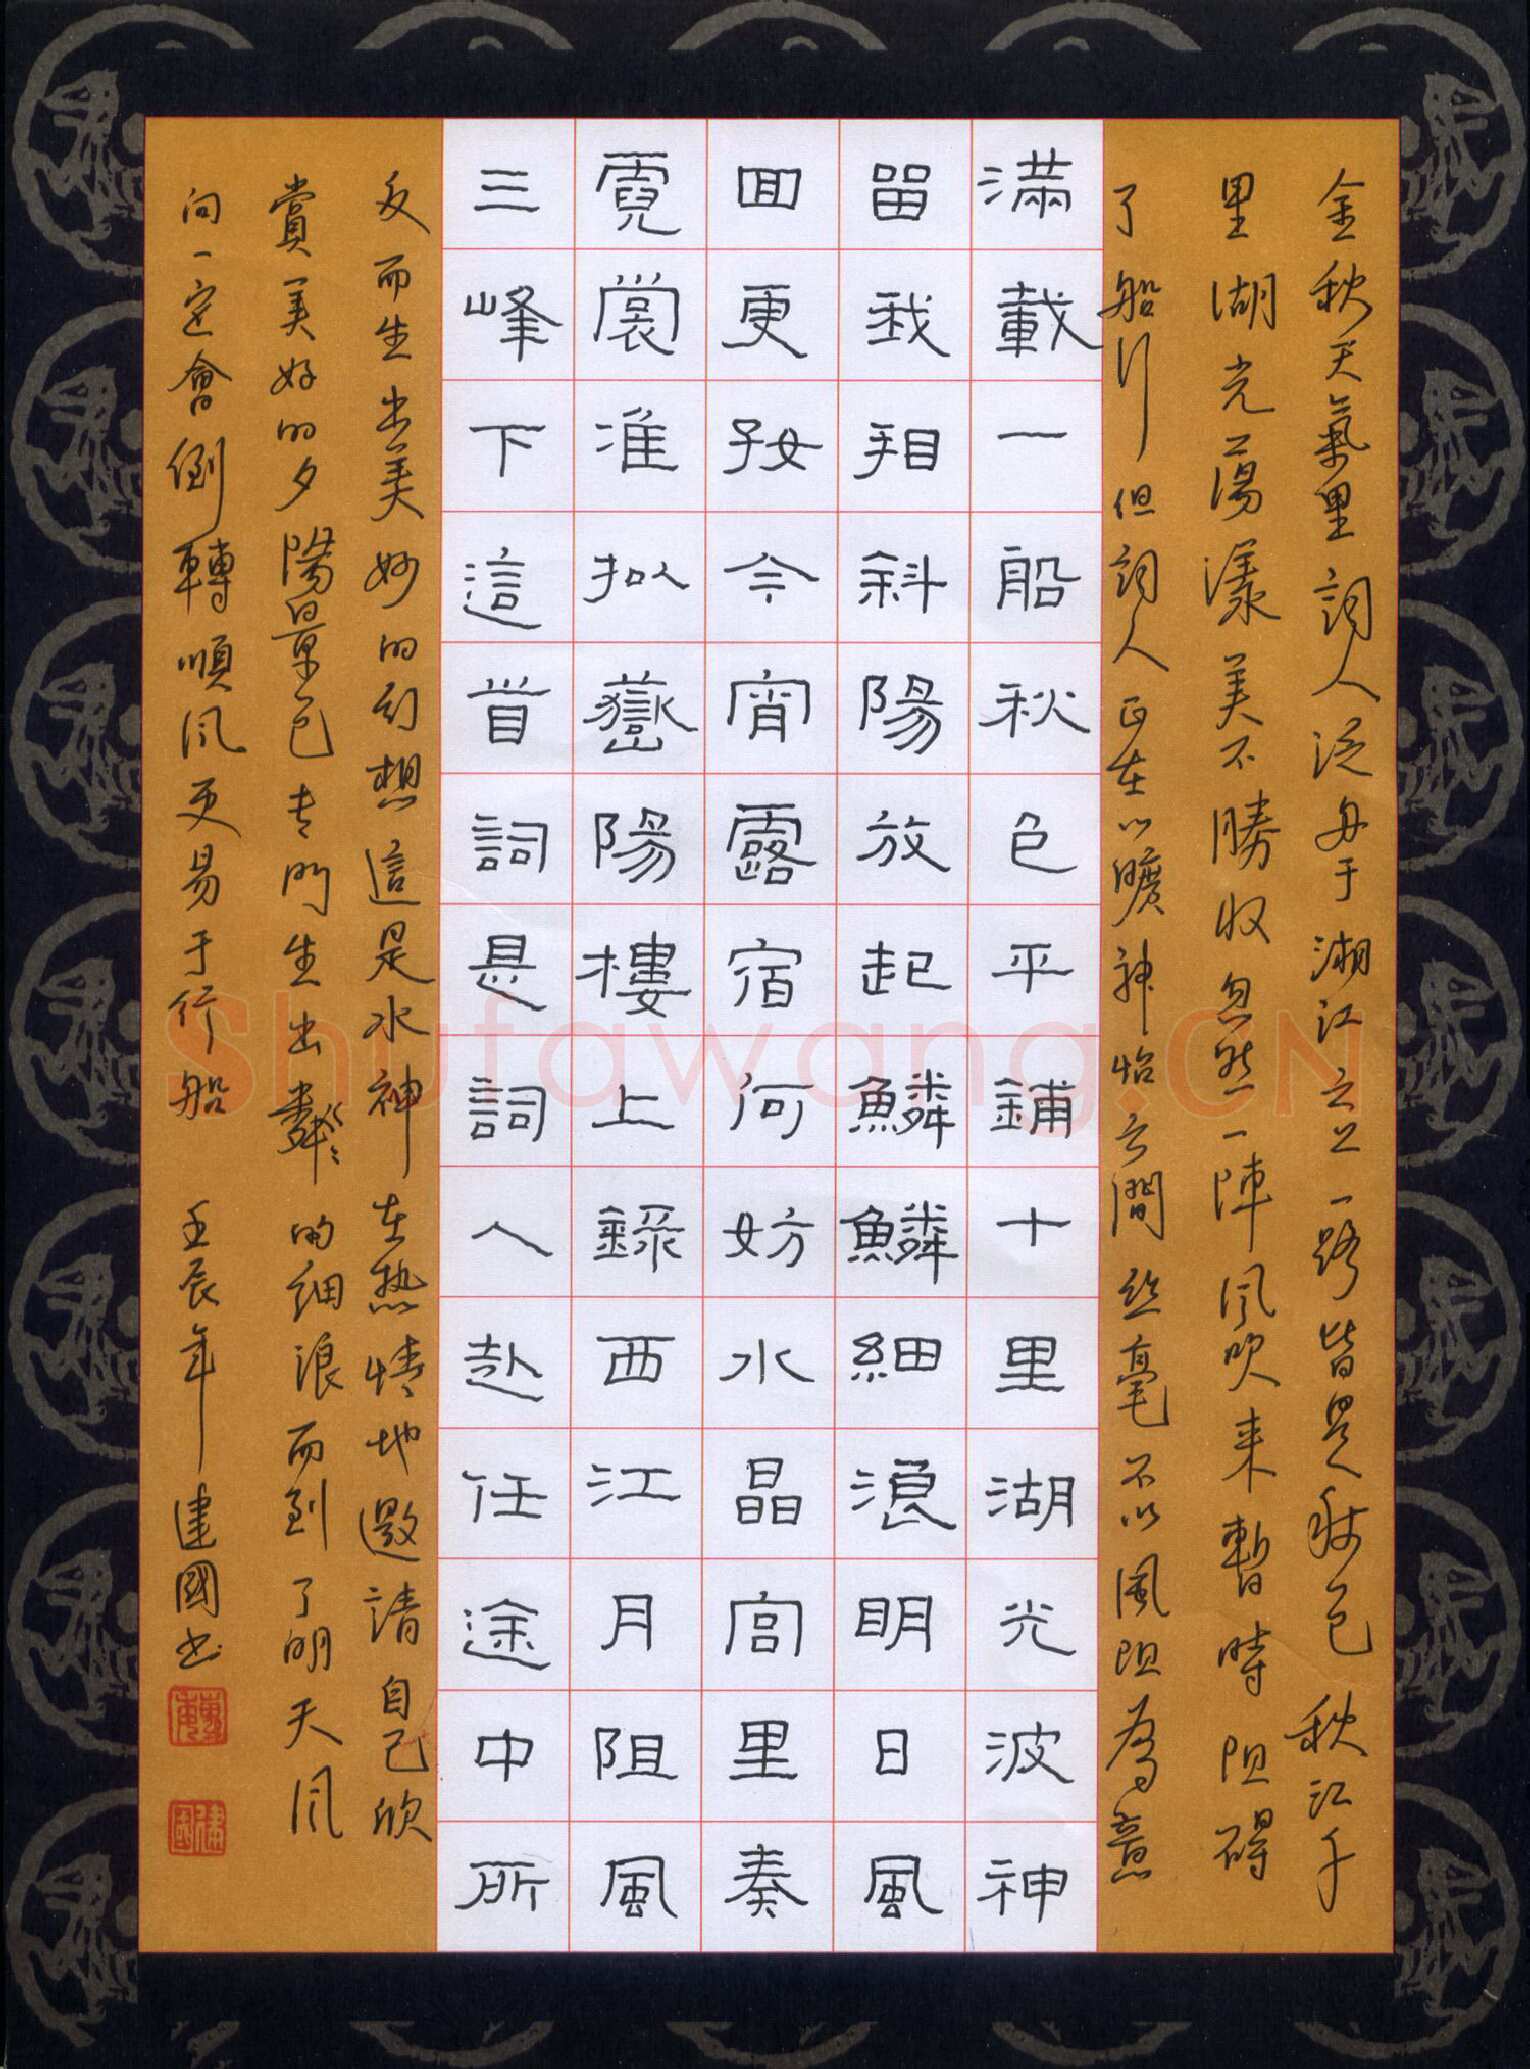 金秋天氣里詞人泛舟于湘江之上一路皆是秋色秋江千
里湖光蕩漾美不勝收忽然一陣風吹来暫時阻碍
了船行但詞人正在心曠神怡之間丝毫不以風阻為意
滿載一船秋色平鋪十里湖光波神
留我看斜陽放起鱗鱗細浪明日風
回更好今宵露宿何妨水晶宫里奏
霓裳准拟嶽陽樓上錄西江月阻風
三峰下這首詞是詞人赴任途中所
反而生出美妙的幻想這是水神在热情地邀請自己欣
賞美好的夕陽景色专門生出粼〻的细浪而到了明天風
向一定會倒轉順風更易于行船 壬辰年 建國书
Shufawang.CN